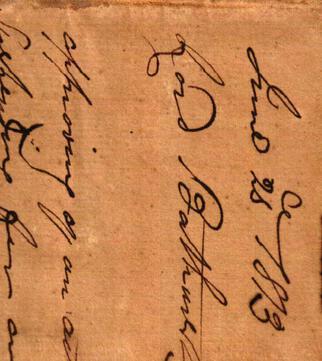 June 28 1813
Lord Bathurst
approving of an
for an